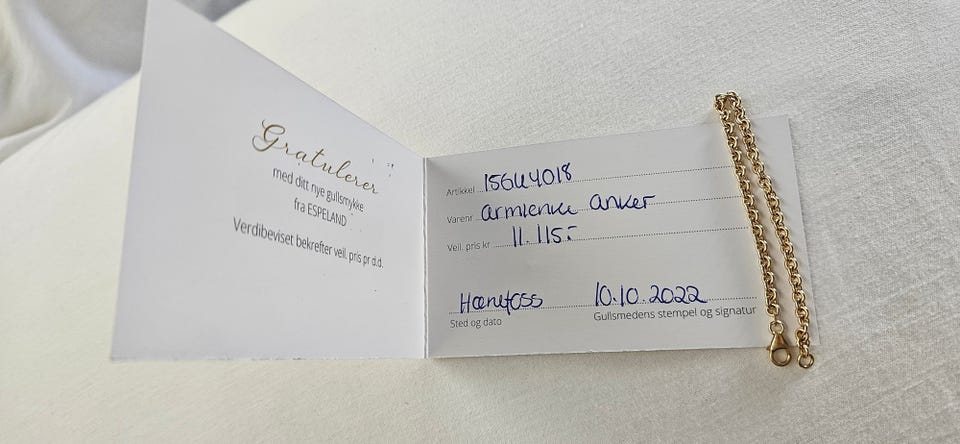 Gratulerer
med ditt nye gullsmykke
fra ESPELAND
Verdibeviset bekrefter veil. pris pr d.d.
Artikkel 156447018
Varenr armlenke anker
Veil. pris kr 11.115:-
Hønefoss 10.10.2022
Sted og dato Gullsmedens stempel og signatur